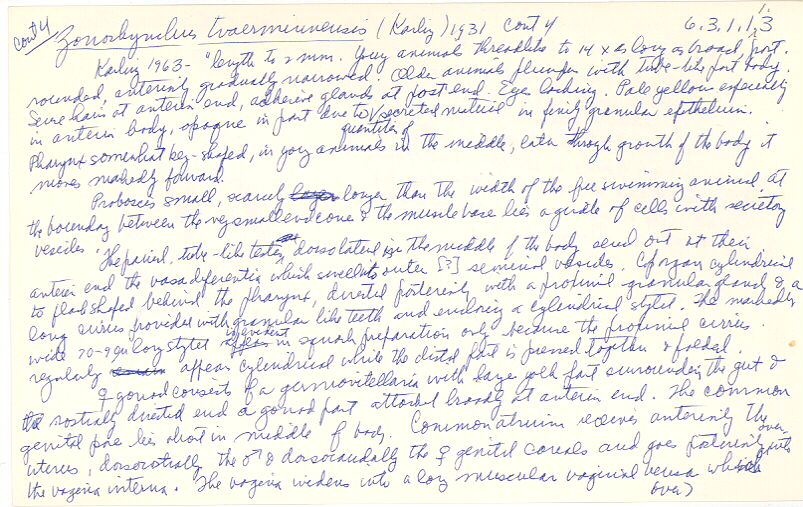 cont 4 Zonorhynchus tvaerminnensis (Karling) 1931 cont 4 6.3.1.1.3
Karling 1963- "length to 2 mm. Young animals threadlike to 14 x as long as broad, post.
rounded, anteriorly gradually narrowed. Older animals plumper with tube-like post body.
Sense hairs at anterior end, adhesive glands at post end. Eyes lacking. Pale yellow especially
in anterior body, opaque in part due to quantities of secreted material in finely granular epithelium.
Pharynx somewhat keg-shaped, in young animals in the middle, later through growth of the body it
moves markedly forward.
Proboscis small, scarcely longer than the width of the free swimming animal. At
the boundary between the very small end cone & the muscle base lies a girdle of cells with secretory
vesicles. "The paired, tube-like testes dorsolateral in the middle of the body send out at their
anterior end the vasa deferentia which swell to outer [?] seminal vesicles. C organ cylindrical
to flask shaped behind the pharynx, directed posteriorly with a proximal granular gland & a
long cirrus provided with granular like teeth and enclosing a cylindrical stylet. The markedly
wide 70-94µ long stylet is evident in squash preparation only because the proximal cirrus.
regularly appears cylindrical while the distal part is pressed together & folded.
♀ gonad consists of a germovitellaria with large yolk part surrounding the gut &
rostrally directed end a gonad part attached broadly at anterior end. The common
genital pore lies about in middle of body. Common atrium receives anteriorly the
uterus, dorsorostrally the ♂ & dorsocaudally the ♀ genital canals and goes posteriorly over into
the vagina interna. The vagina widens into a long muscular vaginal bursa which
over)